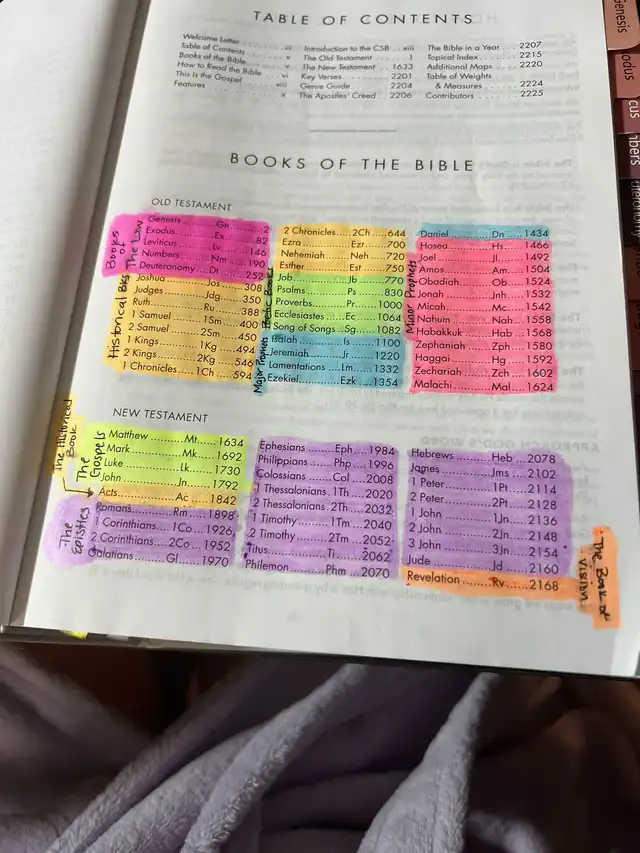 TABLE OF CONTENTS
Welcome Letter
Table of Contents ..... iii
Books of the Bible ..... v
How to Read the Bible ..... vi
This is the Gospel ..... viii
Features ..... x
Introduction to the CSB .. xiii
The Old Testament ..... 1
The New Testament ..... 1633
Key Verses ..... 2201
Genre Guide ..... 2204
The Apostles' Creed .. 2206
The Bible in a Year .... 2207
Topical Index ..... 2215
Additional Maps .... 2220
Table of Weights
& Measures ..... 2224
Contributors ..... 2225
BOOKS OF THE BIBLE
OLD TESTAMENT
Books of The Law
Genesis ..... Gn ..... 2
Exodus ..... Ex ..... 82
Leviticus ..... Lv ..... 146
Numbers ..... Nm ..... 190
Deuteronomy ... Dt ..... 252
Historical Bks
Joshua ..... Jos ..... 308
Judges ..... Jdg .... 350
Ruth ..... Ru ..... 388
1 Samuel ..... 1Sm .... 400
2 Samuel ..... 2Sm .... 450
1 Kings ..... 1Kg .... 494
2 Kings ..... 2Kg .... 546
1 Chronicles ..... 1Ch ..... 594
2 Chronicles ..... 2Ch ..... 644
Ezra ..... Ezr ..... 700
Nehemiah ..... Neh ..... 720
Esther ..... Est ..... 750
Poetic Books
Job ..... Jb ..... 770
Psalms ..... Ps ..... 830
Proverbs ..... Pr ..... 1000
Ecclesiastes ..... Ec ..... 1064
Song of Songs .. Sg ..... 1082
Major Prophets
Isaiah ..... Is ..... 1100
Jeremiah ..... Jr ..... 1220
Lamentations .... Lm ..... 1332
Ezekiel ..... Ezk .... 1354
Daniel ..... Dn .... 1434
Minor Prophets
Hosea ..... Hs ..... 1466
Joel ..... Jl ..... 1492
Amos ..... Am .... 1504
Obadiah ..... Ob .... 1524
Jonah ..... Jnh .... 1532
Micah ..... Mc .... 1542
Nahum ..... Nah .... 1558
Habakkuk ..... Hab .... 1568
Zephaniah ..... Zph .... 1580
Haggai ..... Hg .... 1592
Zechariah ..... Zch .... 1602
Malachi ..... Mal .... 1624
NEW TESTAMENT
The Historical Book
The Gospels
Matthew ..... Mt .... 1634
Mark ..... Mk .... 1692
Luke ..... Lk .... 1730
John ..... Jn .... 1792
Acts ..... Ac .... 1842
The Epistles
Romans ..... Rm .... 1898
1 Corinthians ..... 1Co .... 1926
2 Corinthians ..... 2Co .... 1952
Galatians ..... Gl .... 1970
Ephesians ..... Eph .... 1984
Philippians ..... Php .... 1996
Colossians ..... Col .... 2008
1 Thessalonians . 1Th .... 2020
2 Thessalonians . 2Th .... 2032
1 Timothy ..... 1Tm .... 2040
2 Timothy ..... 2Tm .... 2052
Titus ..... Ti .... 2062
Philemon ..... Phm .... 2070
Hebrews ..... Heb .. 2078
James ..... Jms ... 2102
1 Peter ..... 1Pt ... 2114
2 Peter ..... 2Pt ... 2128
1 John ..... 1Jn .... 2136
2 John ..... 2Jn .... 2148
3 John ..... 3Jn .... 2154
Jude ..... Jd ..... 2160
Revelation ..... Rv .... 2168
The Book of Vision
Genesis
odus
cus
mbers